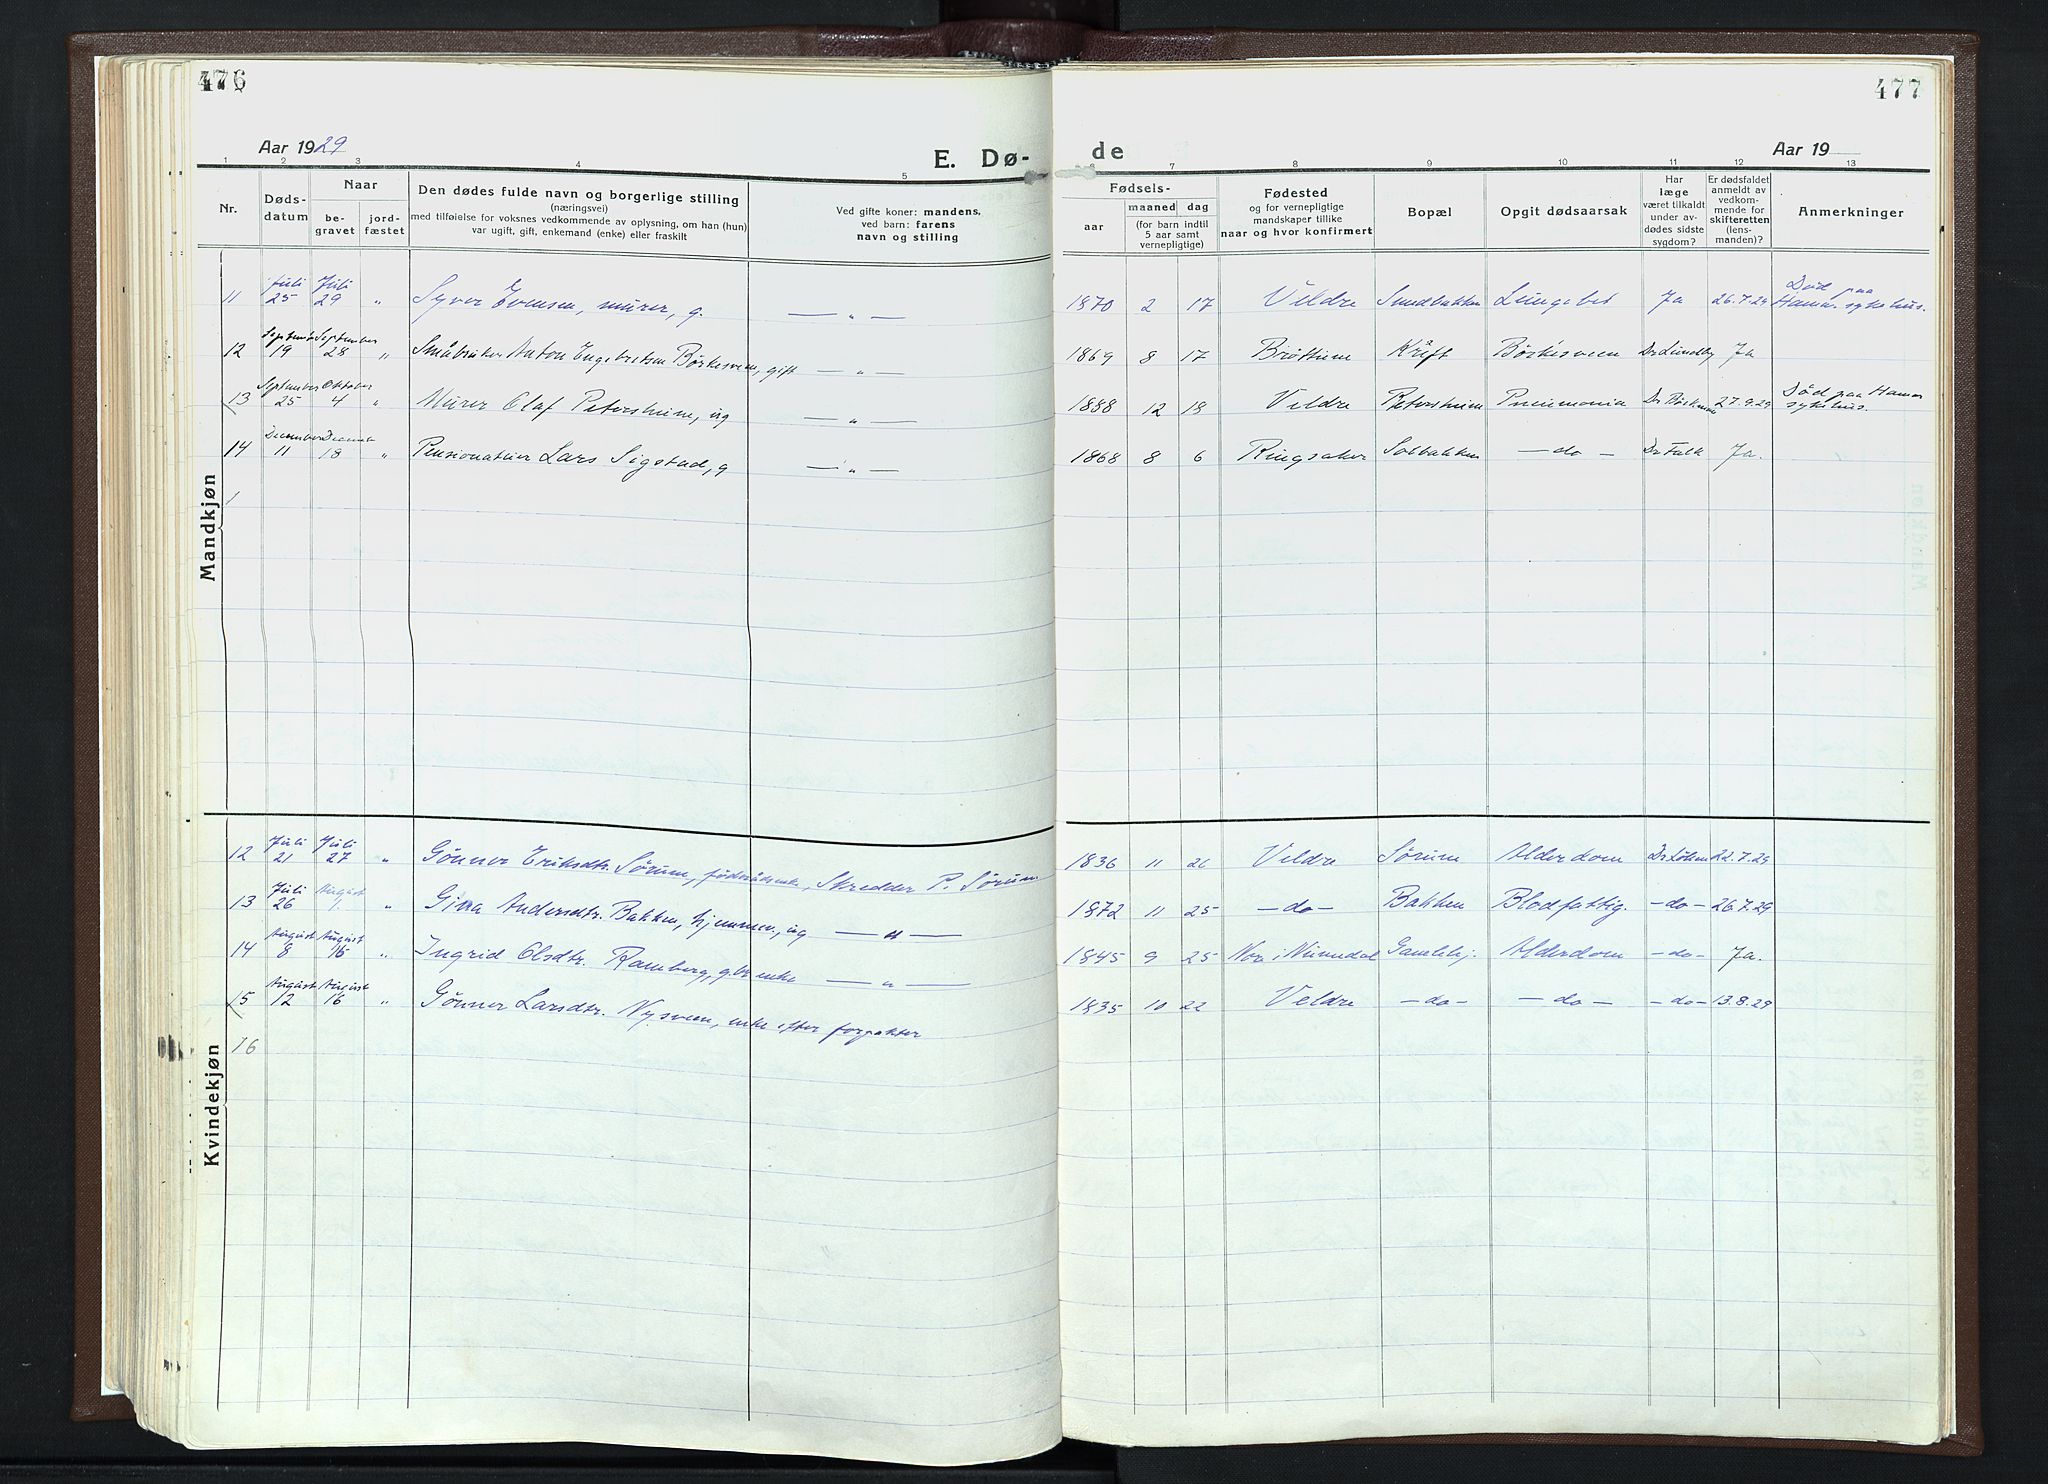 476
Aar 1929
E. Dø-
1 2 3 4 5
Nr.
Døds-
datum
Naar
be-
gravet
jord-
fæstet
Den dødes fulde navn og borgerlige stilling
(næringsvei)
med tilføielse for voksnes vedkommende av oplysning, om han (hun)
var ugift, gift, enkemand (enke) eller fraskilt
Ved gifte koner: mandens,
ved barn: farens
navn og stilling
Mandkjøn
11 Juli 25 Juli 29 " Syver Evensen, murer, g. — " —
12 September 19 September 28 " Småbruker Anton Engebretsen Børkesveen, gift — " —
13 September 25 Oktober 4 " Murer Olaf Petersheim, ug — " —
14 December 11 December 18 " Pensionateier Lars Sigstad, g — " —
1
Kvindekjøn
12 Juli 21 Juli 27 " Gønner Eriksdtr. Sørum, føderådsenke, Skredder P. Sørum
13 Juli 26 August 1. " Gina Andersdtr. Bakken, hjemmev., ug — " —
14 August 8 August 15 " Ingrid Olsdtr. Ramberg, gbr enke — " —
15 August 12 August 16 " Gønner Larsdtr. Nysveen, enke efter forpakter
16
477
de
Aar 19
6 7 8 9 10 11 12 13
Fødsels-
aar
maaned
dag
(for barn indtil
5 aar samt
vernepligtige)
Fødested
og for vernepligtige
mandskaper tillike
naar og hvor konfirmert
Bopæl
Opgit dødsaarsak
Har
læge
været tilkaldt
under av-
dødes sidste
sygdom?
Er dødsfaldet
anmeldt av
vedkom-
mende for
skifteretten
(lens-
manden)?
Anmerkninger
1870 2 17 Veldre Smedbakken Ja 26.7.29 Død paa
Hamar sykehus.
1869 8 17 Brøttum Krift Børkesveen Dr Lundby Ja
1888 12 18 Veldre Petersheim Pneumonia 27.9.29 Død paa Hamar
sykehus.
1868 8 6 Ringsaker Solbakken — do — Dr Falk Ja.
1836 11 26 Veldre Sørum Alderdom Dr Løken 22.7.29
1872 11 25 — do — Bakken Blodfattig. — do — 26.7.29
1845 9 25 Nore i Numedal Gamlehj. Alderdom — do — Ja.
1835 10 22 Veldre — do — — do — — do — 13.8.29